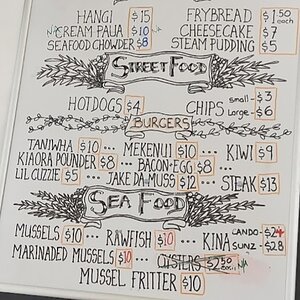 HANGI $15 FRYBREAD $1.50 each
N/A CREAM PAUA $10 N/A CHEESECAKE $7
SEAFOOD CHOWDER $8 STEAM PUDDING $5
STREET FOOD
HOTDOGS $4 CHIPS small - $3
Large - $6
BURGERS
TANIWHA $10 ... MEKENUI $10 ... KIWI $9
KIAORA POUNDER $8 ... BACON+EGG $8 ...
LIL CUZZIE $5 ... JAKE DA MUSS $12 ... STEAK $13
SEA FOOD
MUSSELS $10 ... RAWFISH $10 ... KINA CANDO - $24
SUNZ - $28
MARINADED MUSSELS $10 ... OYSTERS $2.50 N/A
MUSSEL FRITTER $10